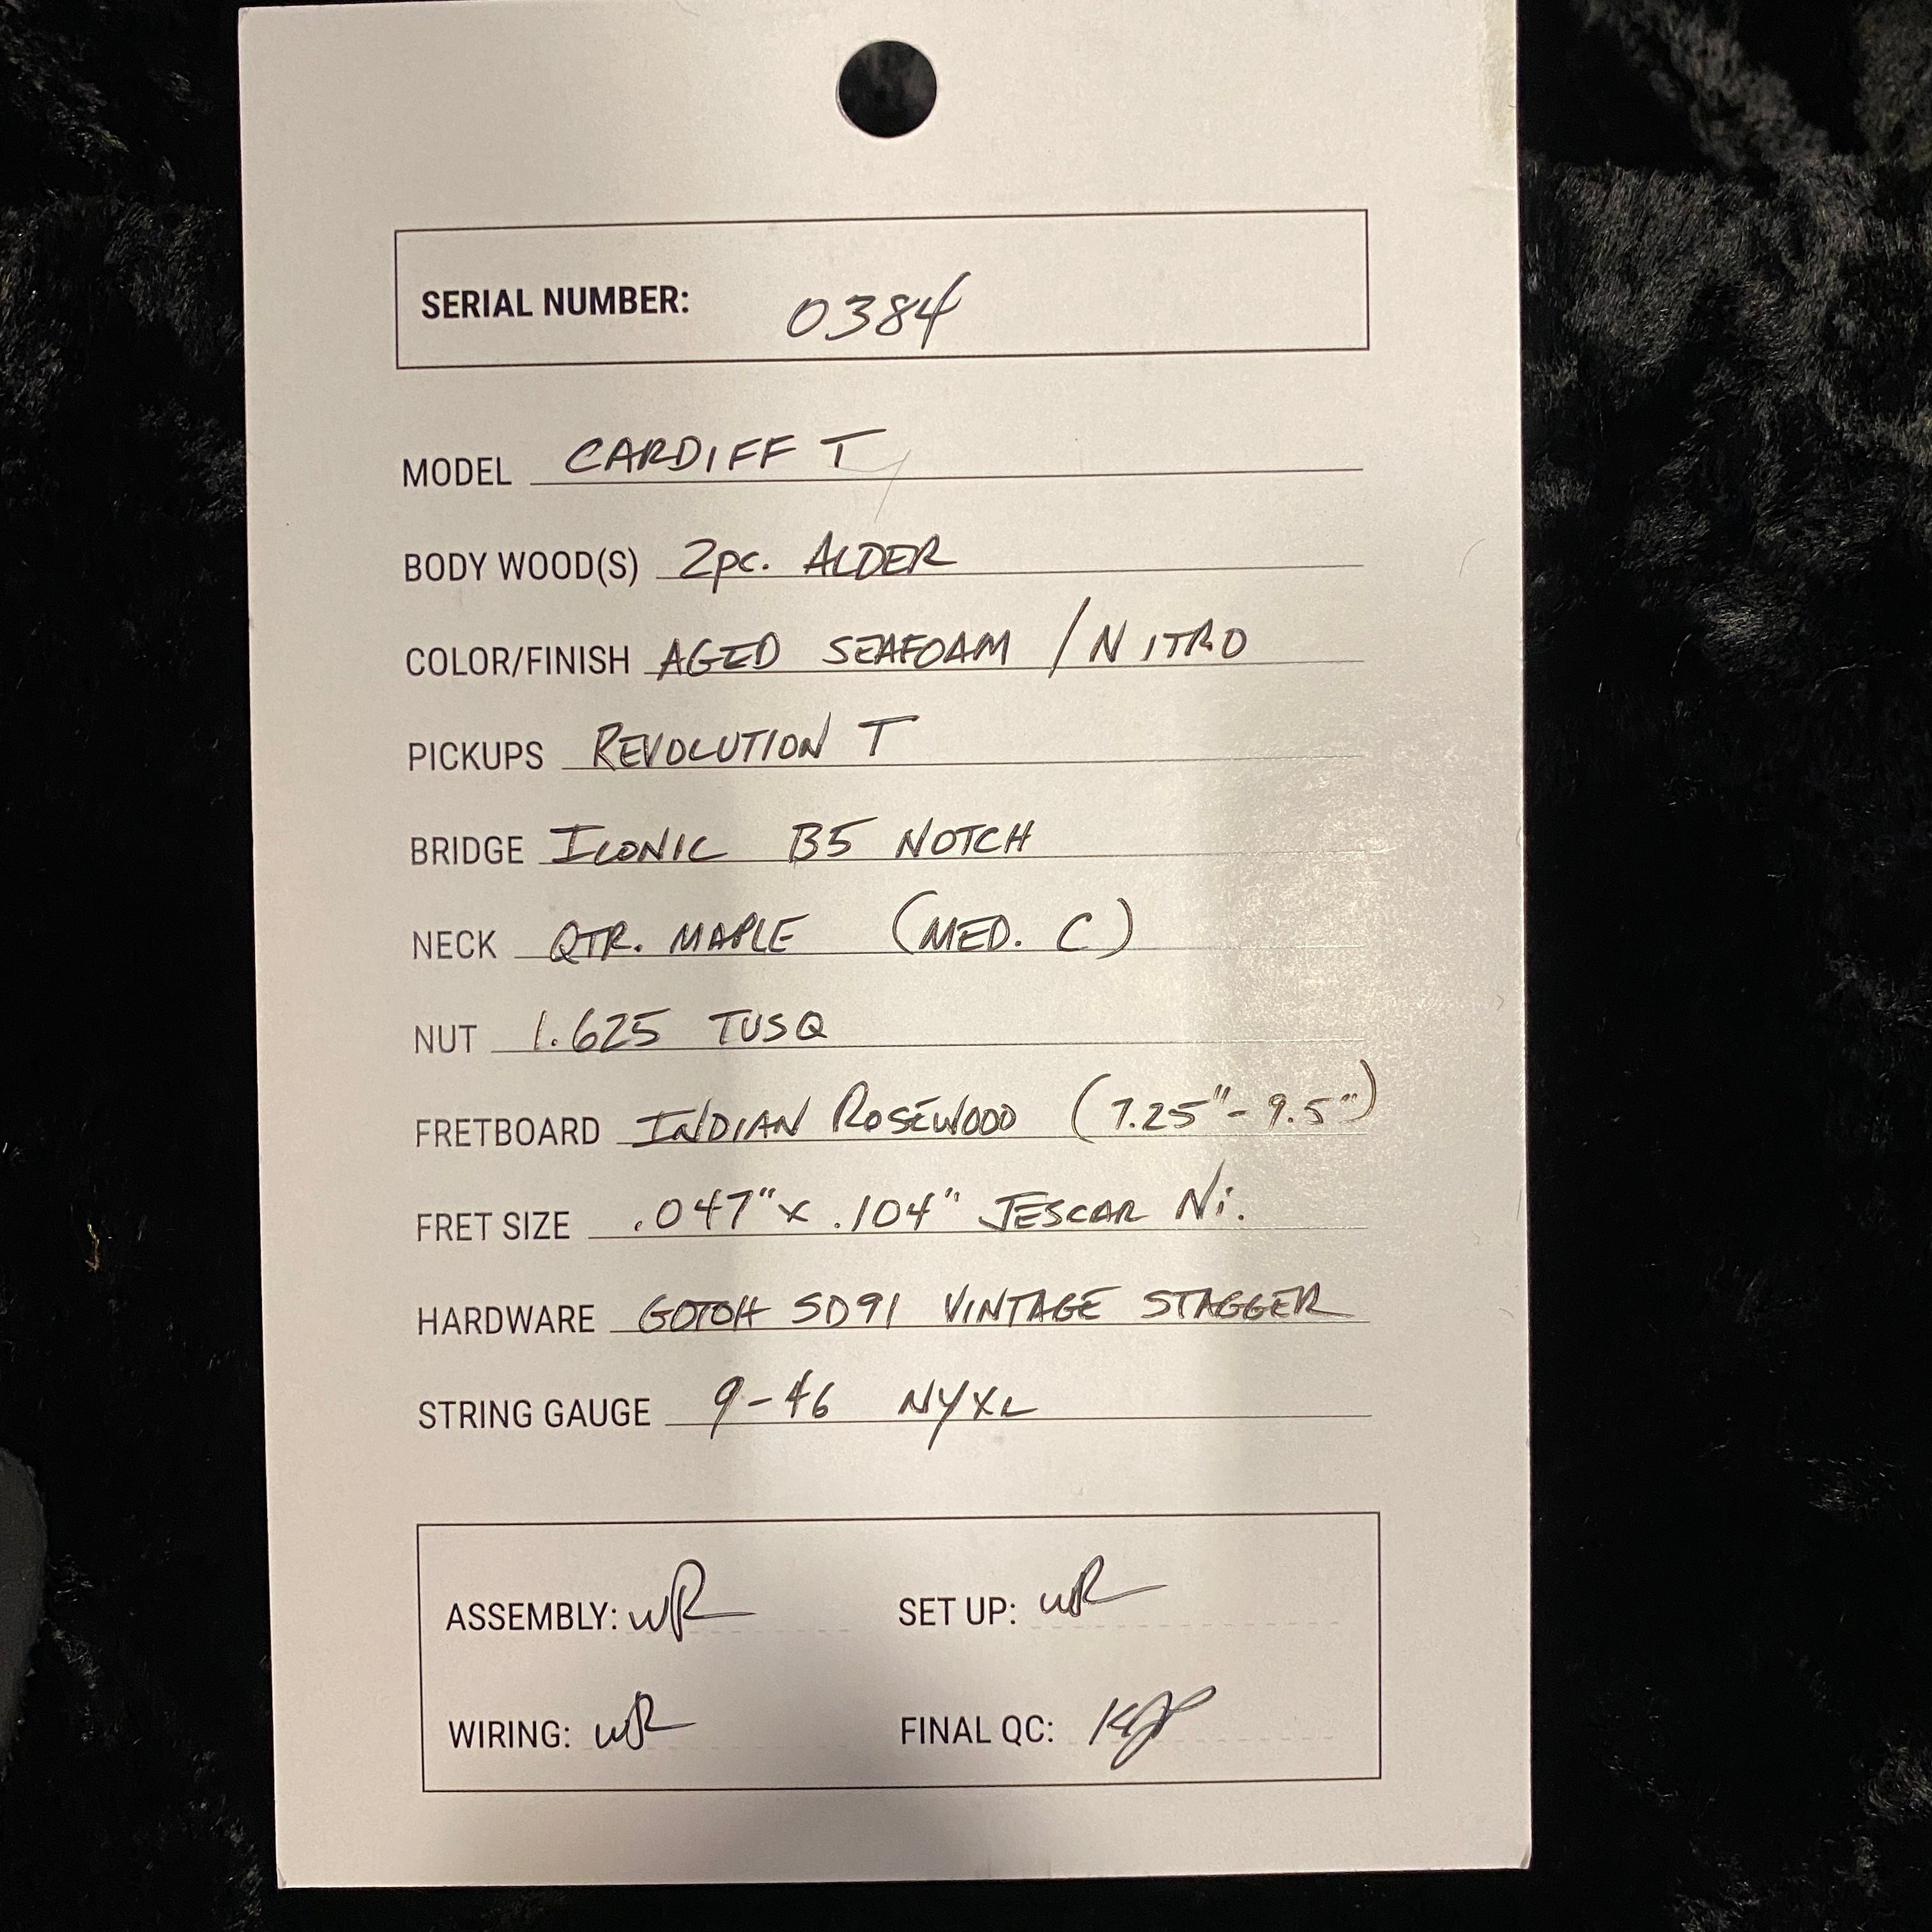 SERIAL NUMBER: 0384
MODEL CARDIFF T
BODY WOOD(S) 2pc. ALDER
COLOR/FINISH AGED SEAFOAM / NITRO
PICKUPS REVOLUTION T
BRIDGE ICONIC B5 NOTCH
NECK QTR. MAPLE (MED. C)
NUT 1.625 TUSQ
FRETBOARD INDIAN ROSEWOOD (7.25"-9.5")
FRET SIZE .047" x .104" JESCAR Ni.
HARDWARE GOTOH SD91 VINTAGE STAGGER
STRING GAUGE 9-46 NYXL
ASSEMBLY: WR SET UP: WR
WIRING: WR FINAL QC: